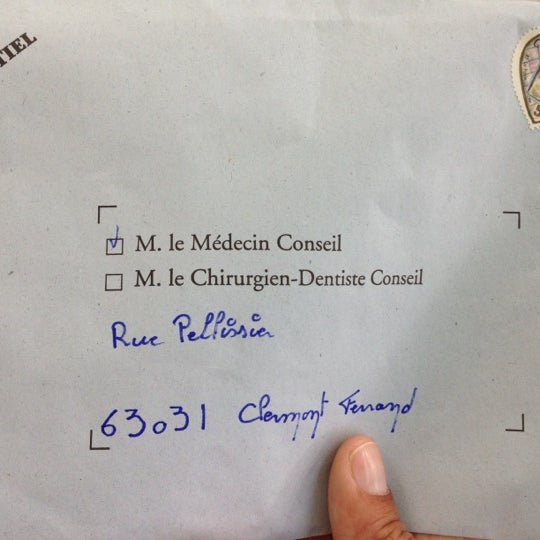 TIEL
M. le Médecin Conseil
M. le Chirurgien-Dentiste Conseil
Rue Pellissier
63031 Clermont Ferrand